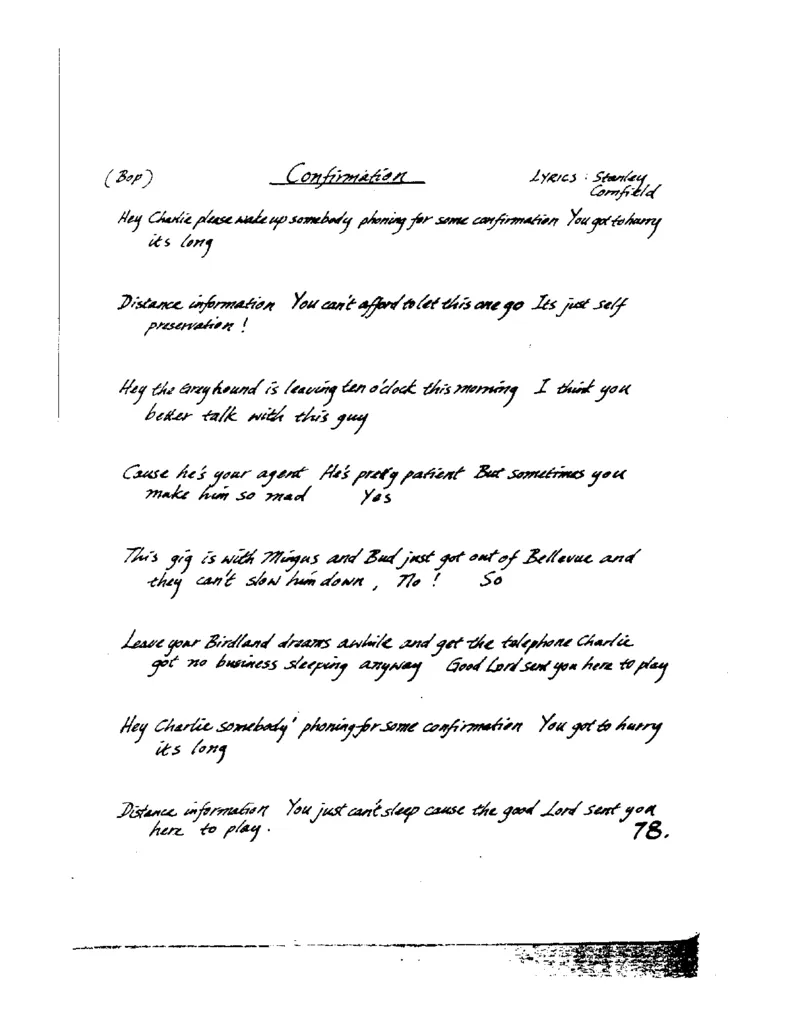 (Bop) Confirmation LYRICS : Stanley
Cornfield
Hey Charlie please wake up somebody phoning for some confirmation You got to hurry
its long
Distance information You can't afford to let this one go Its just self
preservation !
Hey the Greyhound is leaving ten o'clock this morning I think you
better talk with this guy
Cause he's your agent He's pretty patient But sometimes you
make him so mad Yes
This gig is with Mingus and Bud just got out of Bellevue and
they can't slow him down , No ! So
Leave your Birdland dreams awhile and get the telephone Charlie
got no business sleeping anyway Good Lord sent you here to play
Hey Charlie somebody' phoning for some confirmation You got to hurry
its long
Distance information You just can't sleep cause the good Lord sent you
here to play .
78.